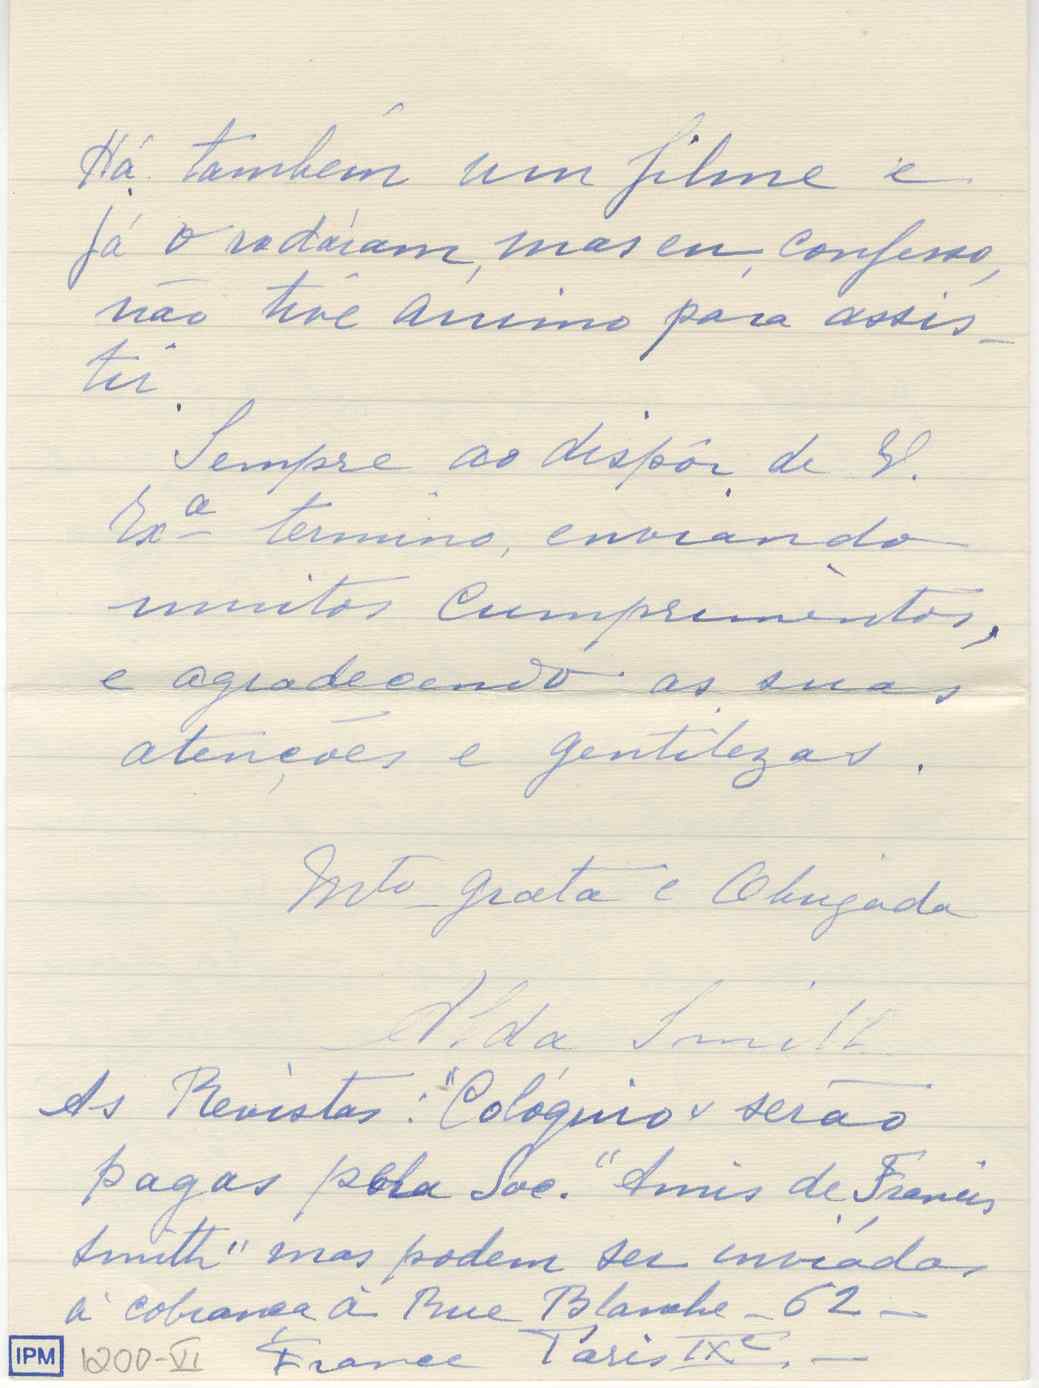 Há também um filme e
já o rodáram, mas eu, confesso,
não tive ânimo para assis-
tir.
Sempre ao dispôr de V.
Exª termino, enviando
muitos cumprimentos,
e agradecendo as suas
atenções e gentilezas.
Mto grata e Obrigada
Alda Smith
As Revistas: "Colóquio" serão
pagas pela Soc. "Amis de Francis
Smith" mas podem ser enviadas
à cobrança à Rue Blanche - 62 -
France Paris IXe. -
IPM 1200-VI